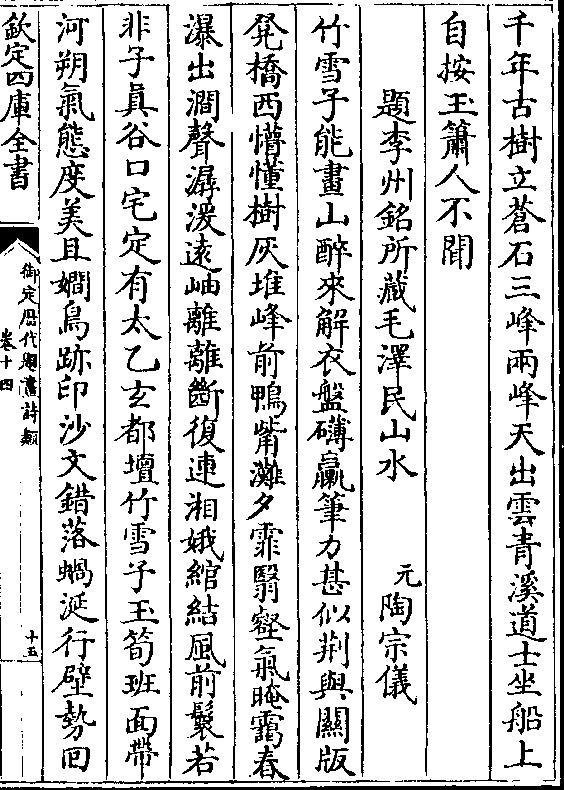 千年古樹立蒼石三峰兩峰天出雲青溪道士坐船上
自按玉簫人不聞
題李州銘所藏毛澤民山水
元陶宗儀
竹雪子能畫山醉來解衣盤礴臝筆力甚似荆與關版
凳橋西懵懂樹灰堆峰前鴨觜灘夕霏翳壑氣晻靄春
瀑出澗聲潺湲遠岫離離斷復連湘娥綰結風前鬟若
非子真谷口宅定有太乙玄都壇竹雪子玉筍班面帶
河朔氣態度美且嫺鳥跡印沙文錯落蝸涎行壁勢回
欽定四庫全書
御定歷代題畫詩類
卷十四
十五